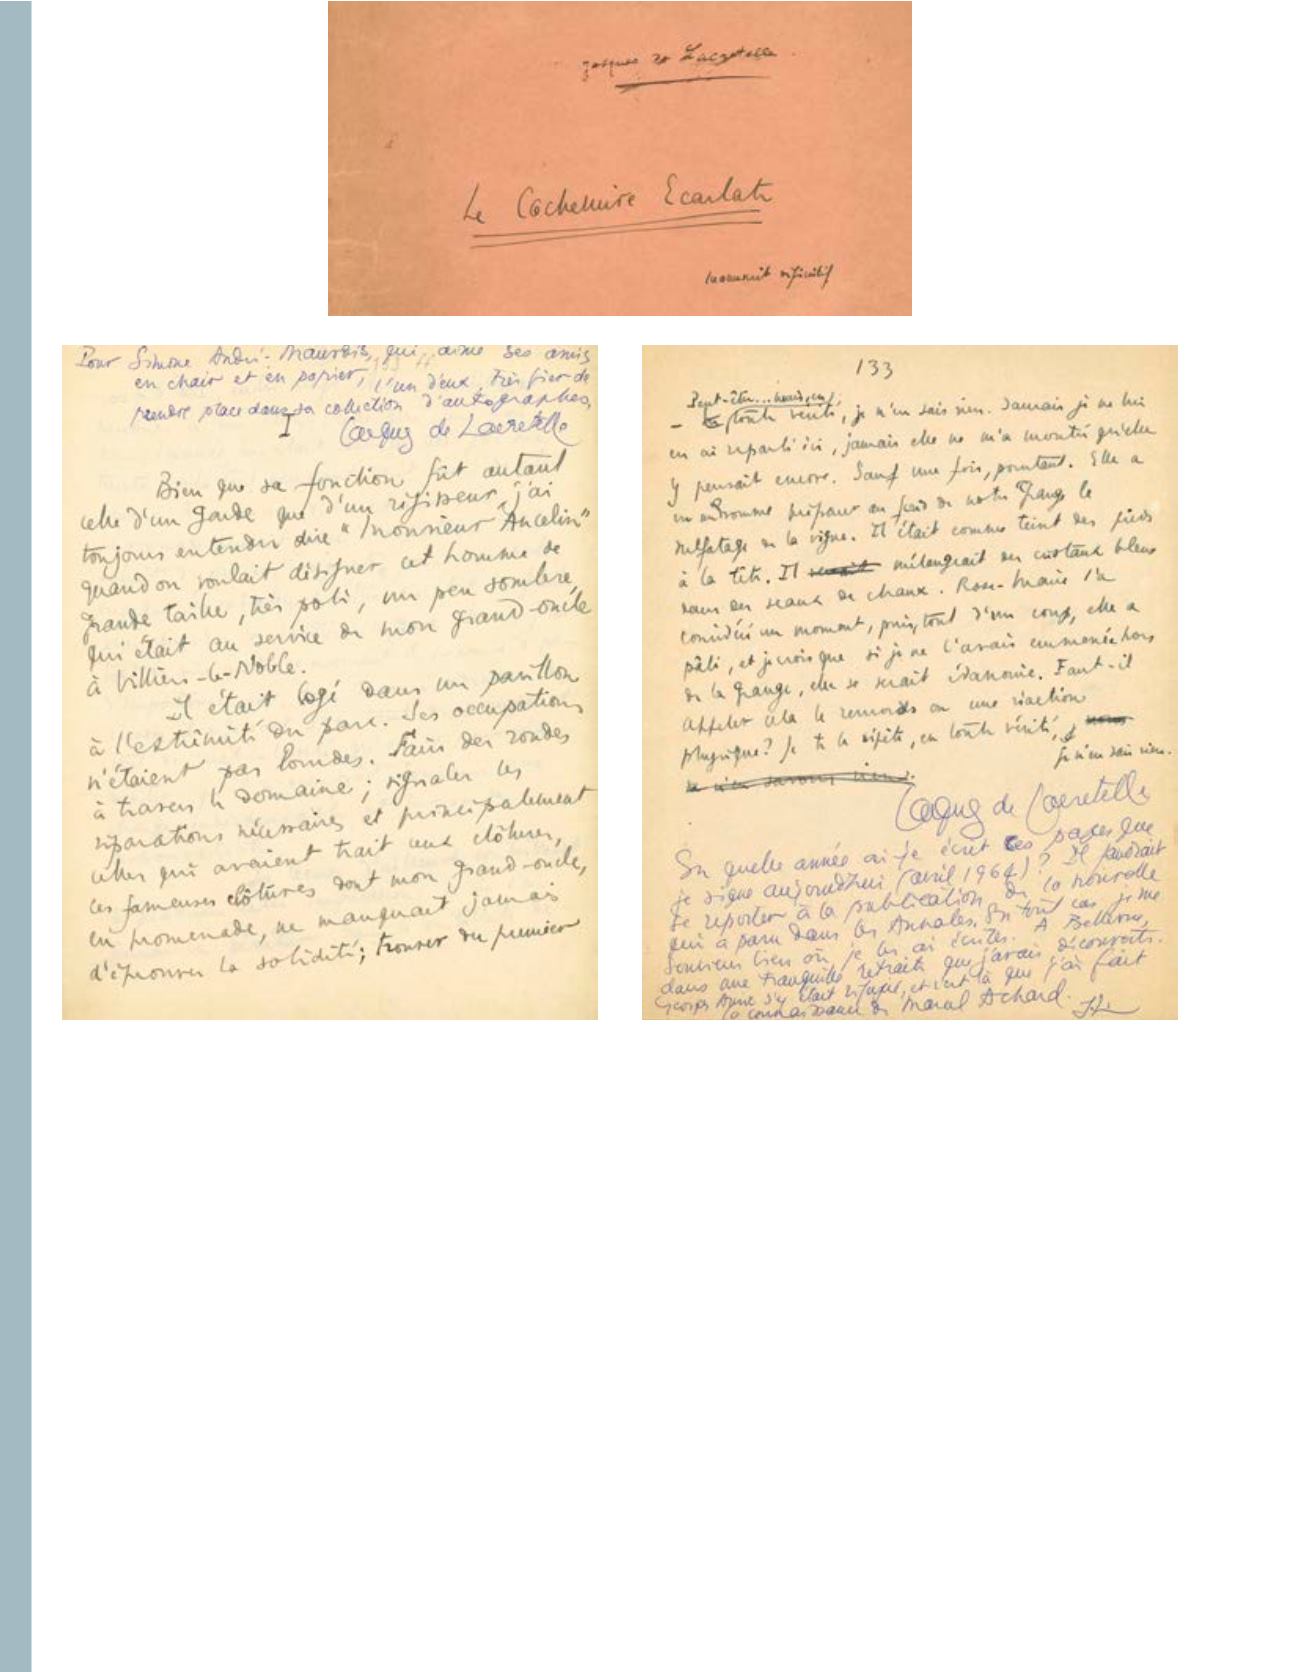 Jacques de Lacretelle
Le Cachemire Ecarlate
manuscrit définitif
Pour Simone André-Maurois, qui aime ses amis
en chair et en papier, l'un d'eux, très fier de
prendre place dans sa collection d'autographes,
Jacques de Lacretelle
I
Bien que sa fonction fût autant
celle d'un garde que d'un régisseur, j'ai
toujours entendu dire "Monsieur Ancelin"
quand on voulait désigner cet homme de
grande taille, très poli, un peu sombre,
qui était au service de mon grand-oncle
à Villiers-le-Noble.
Il était logé dans un pavillon
à l'extrémité du parc. Ses occupations
n'étaient pas lourdes. Faire des rondes
à travers le domaine ; signaler les
réparations nécessaires et principalement
celles qui avaient trait aux clôtures,
ces fameuses clôtures dont mon grand-oncle,
en promenade, ne manquait jamais
d'éprouver la solidité ; trouver du premier
133
Peut-être... mais, en
- toute vérité, je n'en sais rien. Jamais je ne lui
en ai reparlé ici, jamais elle ne m'a montré qu'elle
y pensait encore. Sauf une fois, pourtant. Elle a
vu un homme préparer au fond de notre grange le
sulfatage de la vigne. Il était comme teint des pieds
à la tête. Il mélangeait des cristaux bleus
dans des seaux de chaux. Rose-Marie l'a
considéré un moment, puis, tout d'un coup, elle a
pâli, et je crois que si je ne l'avais emmenée hors
de la grange, elle se serait évanouie. Faut-il
appeler cela le remords ou une réaction
physique? Je te le répète, en toute vérité,
je n'en sais rien.
Jacques de Lacretelle
En quelle année ai-je écrit ces pages que
je signe aujourdhui (avril 1964) ? Il faudrait
se reporter à la publication de la nouvelle
qui a paru dans les Annales. En tout cas je me
souviens bien où je les ai écrites. A Bellerive,
dans une tranquille retraite que j'avais découverte.
Georges Anne s'y était réfugié, et c'est là que j'ai fait
la connaissance de Marcel Achard. JL